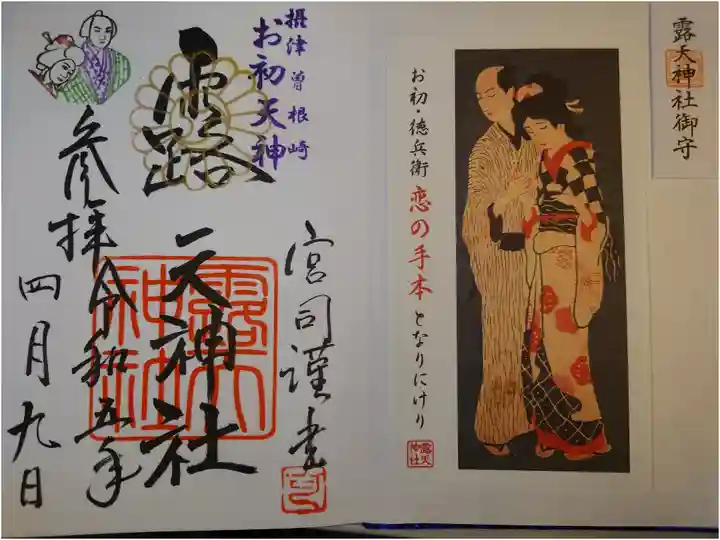 露天神社御守
お初・徳兵衛 恋の手本 となりにけり
露天神社
摂津曽根崎
お初天神
宮司謹書
露
天神社
露天神社
参拝令和五年
四月九日